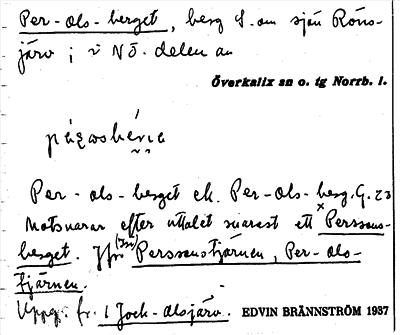 Per-ols-berget, berg S. om sjön Röns-
järv i v NÖ. delen av
Överkalix sn o. tg Norrb. l.
Per-ols-berget el. Per-Ols-berg. G. 23
Motsvarar efter uttalet snarast ett Perssons-
berget. Jfr Perssonstjärnen, Per-ols-
tjärnen.
Uppg. fr. 1 Jock-alsjärv. EDVIN BRÄNNSTRÖM 1937